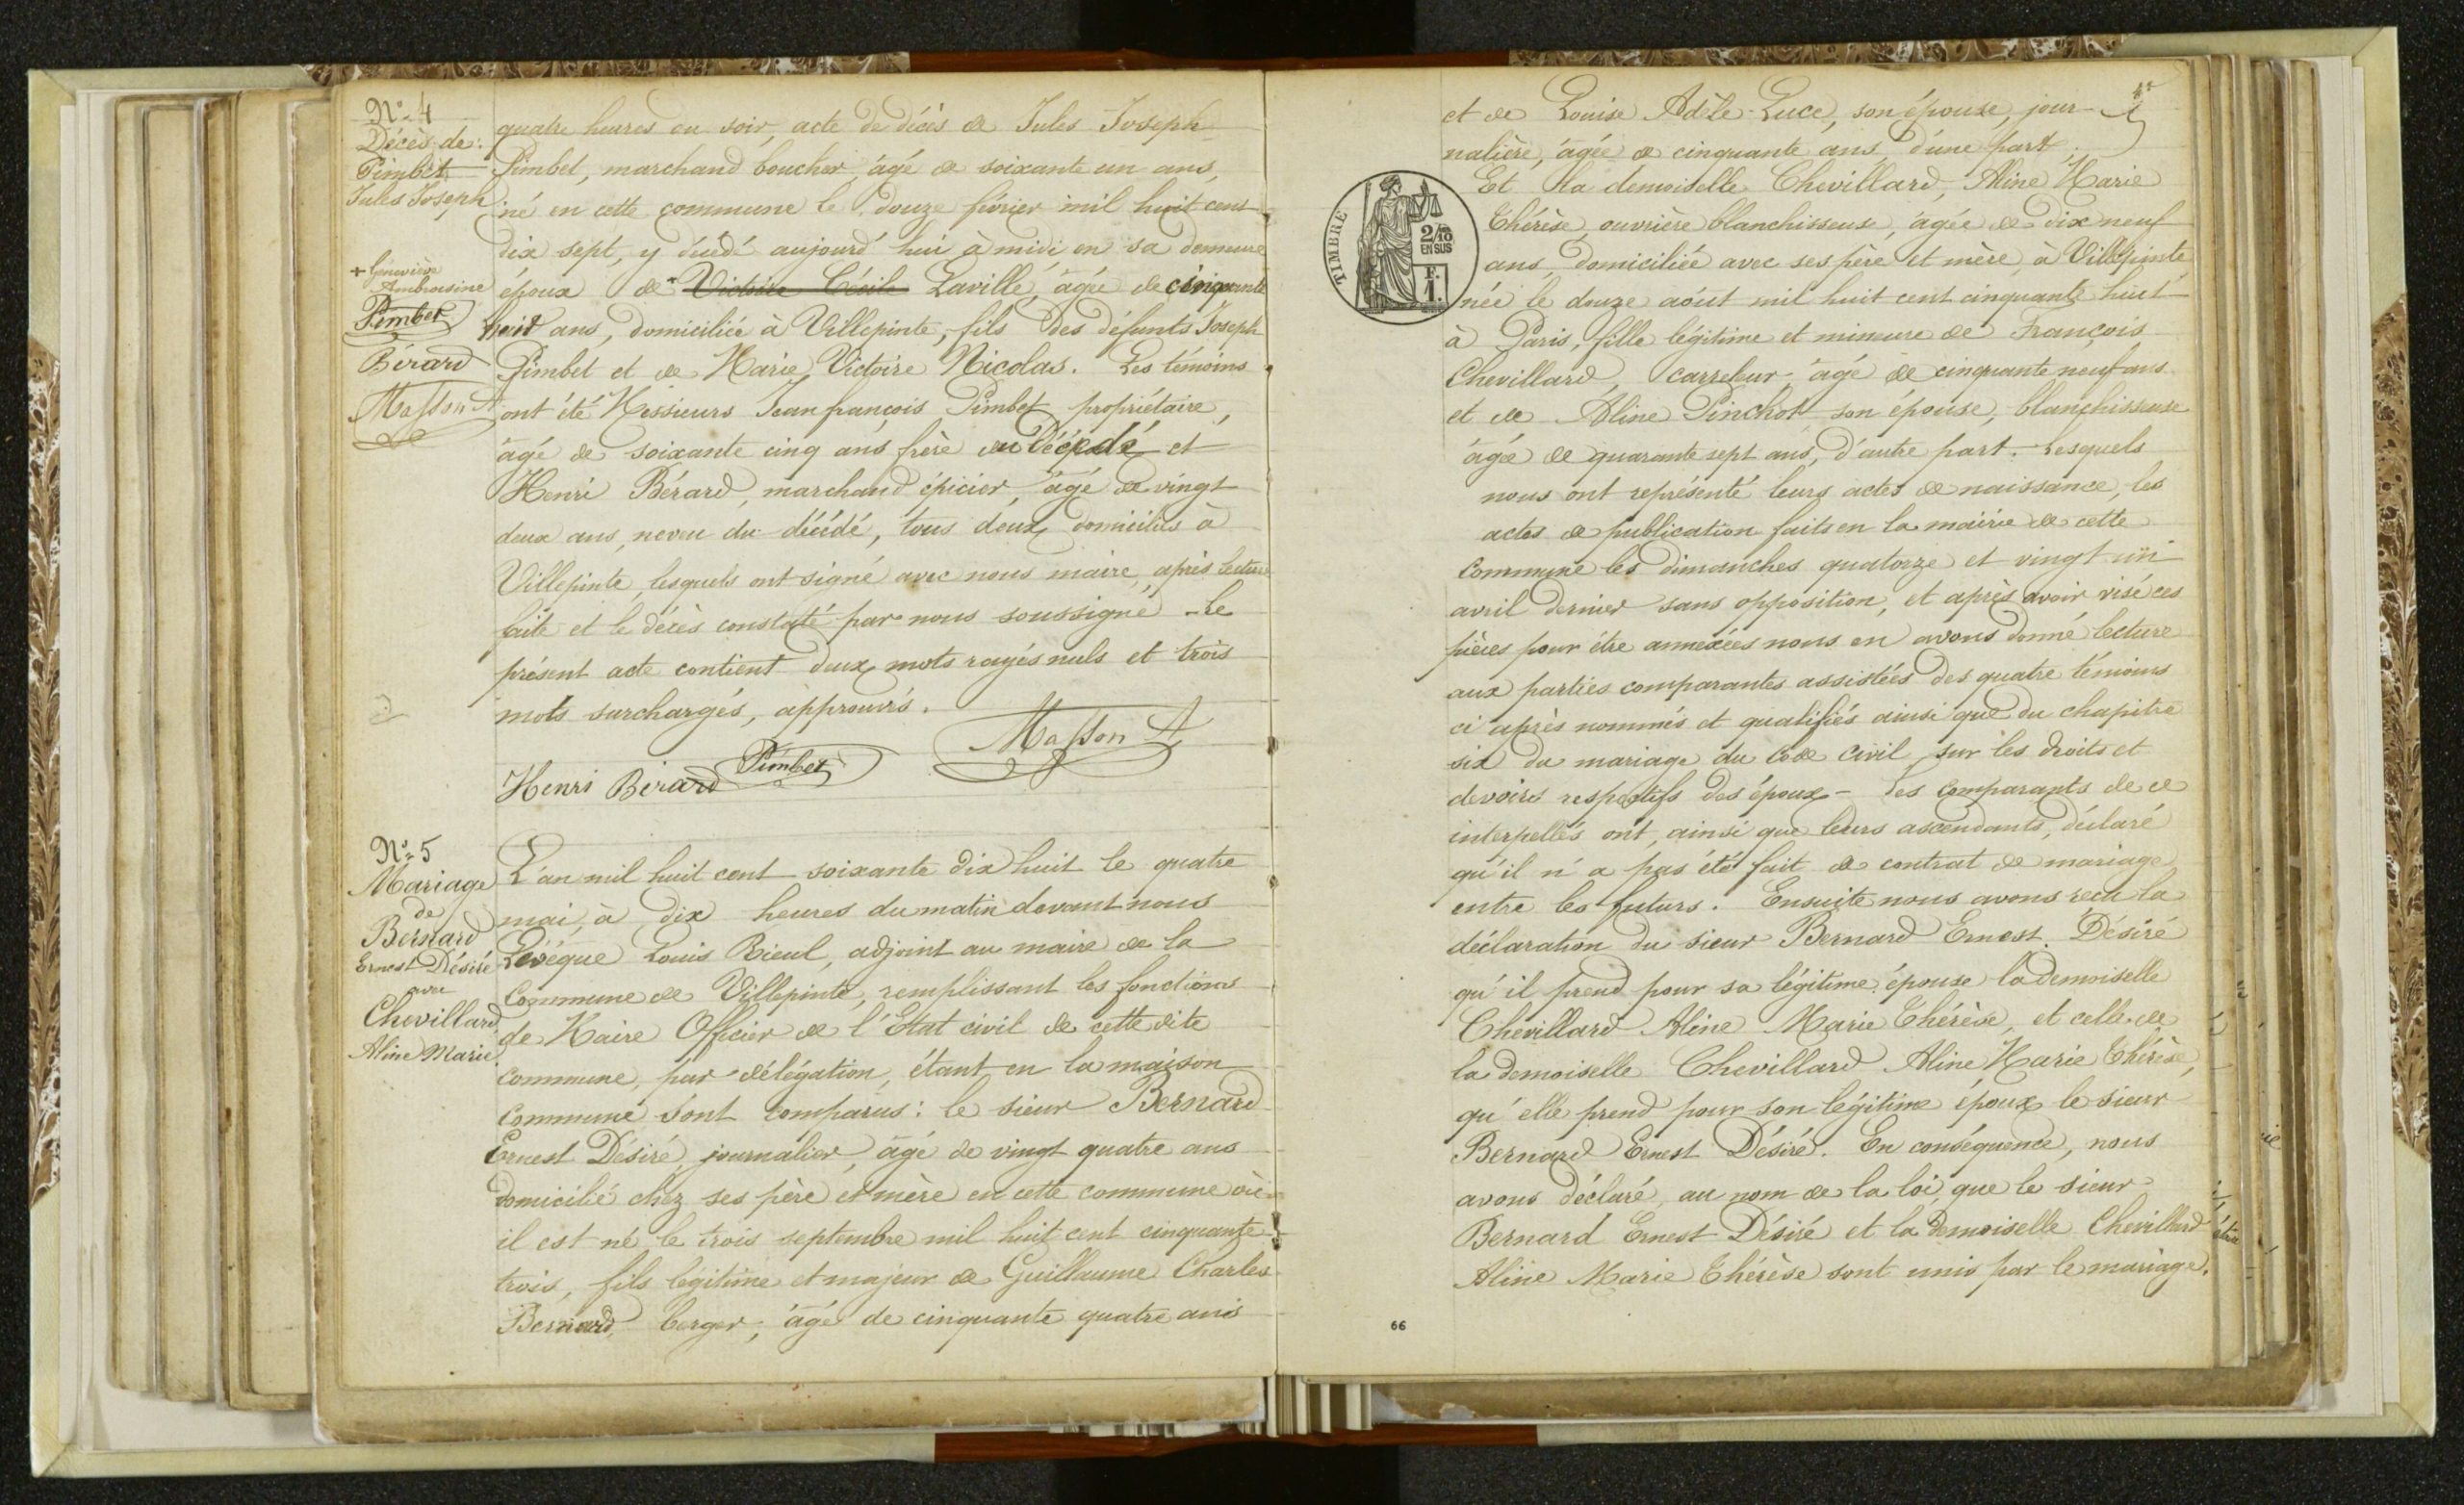 N° 4
Décès de:
Pimbet
Jules Joseph
+ Geneviève
Ambroisine
Pimbet
Bérard
Masson A
quatre heures du soir, acte de décès de Jules Joseph
Pimbet, marchand boucher, âgé de soixante un ans,
né en cette commune le douze février mil huit cent
dix sept, y décédé aujourd'hui à midi en sa demeure
époux de + Victoire Cécile Laville, âgée de cinquante
huit ans, domiciliée à Villepinte, fils des défunts Joseph
Pimbet et de Marie Victoire Nicolas. Les témoins
ont été Messieurs Jean françois Pimbet propriétaire,
âgé de soixante cinq ans frère du Décédé et
Henri Bérard, marchand épicier, âgé de vingt
deux ans, neveu du décédé, tous deux domiciliés à
Villepinte, lesquels ont signé avec nous maire, après lecture
faite et le décès constaté par nous soussigné - Le
présent acte contient deux mots rayés nuls et trois
mots surchargés, approuvés.
Masson A
Pimbet
Henri Bérard
N° 5
Mariage
de
Bernard
Ernest Désiré
avec
Chevillard
Aline Marie
L'an mil huit cent soixante dix huit le quatre
mai, à dix heures du matin devant nous
Lévêque Louis Rieul, adjoint au maire de la
Commune de Villepinte, remplissant les fonctions
de Maire Officier de l'Etat civil de cette dite
commune, par délégation, étant en la maison
commune sont comparus: le sieur Bernard
Ernest Désiré, journalier, âgé de vingt quatre ans
domicilié chez ses père et mère en cette commune où
il est né le trois septembre mil huit cent cinquante
trois, fils légitime et majeur de Guillaume Charles
Bernard berger, âgé de cinquante quatre ans
et de Louise Adèle Luce, son épouse, jour-
nalière, âgée de cinquante ans, d'une part.
Et La demoiselle Chevillard, Aline Marie
Thérèse, ouvrière blanchisseuse, âgée de dix neuf
ans, domiciliée avec ses père et mère, à Villepinte
née le douze août mil huit cent cinquante huit
à Paris, fille légitime et mineure de François
Chevillard, carreleur, âgé de cinquante neuf ans
et de Aline Pinchot son épouse, blanchisseuse
âgée de quarante sept ans, d'autre part. Lesquels
nous ont représenté leurs actes de naissance, les
actes de publication faits en la mairie de cette
commune les dimanches quatorze et vingt un
avril dernier sans opposition, et après avoir visé ces
pièces pour être annexées nous en avons donné lecture
aux parties comparantes assistées des quatre témoins
ci après nommés et qualifiés ainsi que du chapitre
six du mariage du Code Civil, sur les droits et
devoirs respectifs des époux - Les comparants de ce
interpellés ont, ainsi que leurs ascendants, déclaré
qu'il n'a pas été fait de contrat de mariage
entre les futurs. Ensuite nous avons reçu la
déclaration du sieur Bernard Ernest Désiré
qu'il prend pour sa légitime épouse la demoiselle
Chevillard Aline Marie Thérèse, et celle de
la demoiselle Chevillard Aline Marie Thérèse,
qu'elle prend pour son légitime époux le sieur
Bernard Ernest Désiré. En conséquence, nous
avons déclaré au nom de la loi, que le sieur
Bernard Ernest Désiré et la demoiselle Chevillard
Aline Marie Thérèse sont unis par le mariage.
TIMBRE
2/10
EN SUS
F.
1.
66